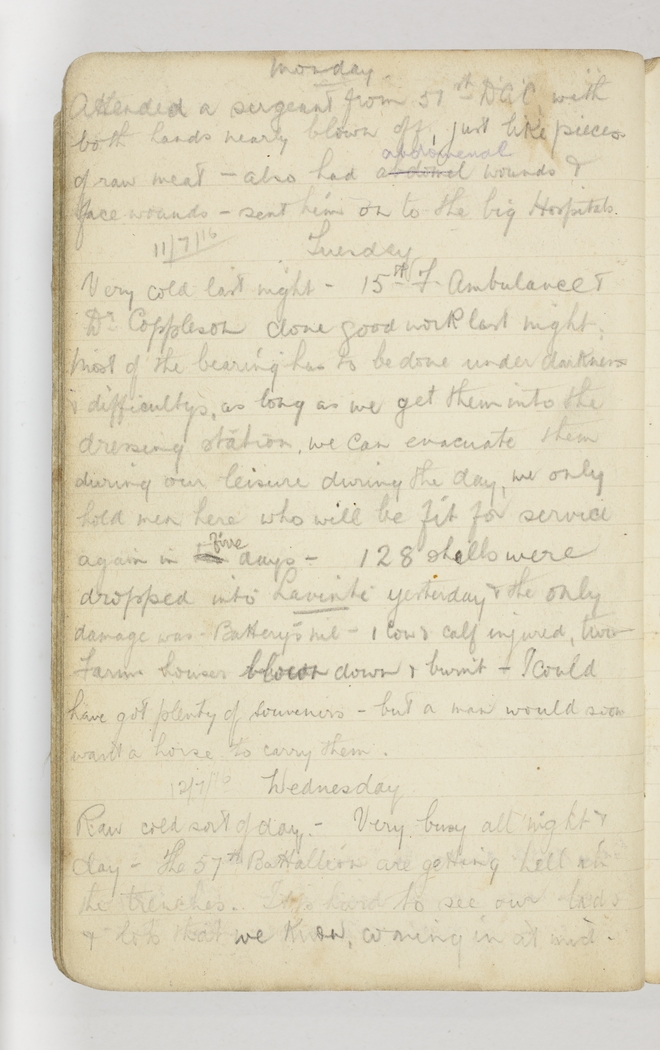 Monday
Attended a sergeant from 57th DAC with
both hands nearly blown off, just like pieces
abdomenal
of raw meat - also had wounds &
face wounds - sent him on to the big Hospitals.
11/7/16 Tuesday
Very cold last night - 15th F. Ambulance &
Dr Coppleson done good work last night,
most of the bearing has to be done under darkness
& difficultys, as long as we get them into the
dressing station, we can evacuate them
during our leisure during the day, we only
hold men here who will be fit for service
five
again in days - 128 shells were
dropped into Lavinti yesterday & the only
damage was - Battery's nil - 1 Cow & calf injured, two
Farm houses blown down & burnt - I could
have got plenty of souveners - but a man would soon
want a horse to carry them.
12/7/16 Wednesday
Raw cold sort of day. - Very busy all night &
day - The 57th Battallion are getting hell in
the trenches. It is hard to see our lads
& lots that we know, coming in at